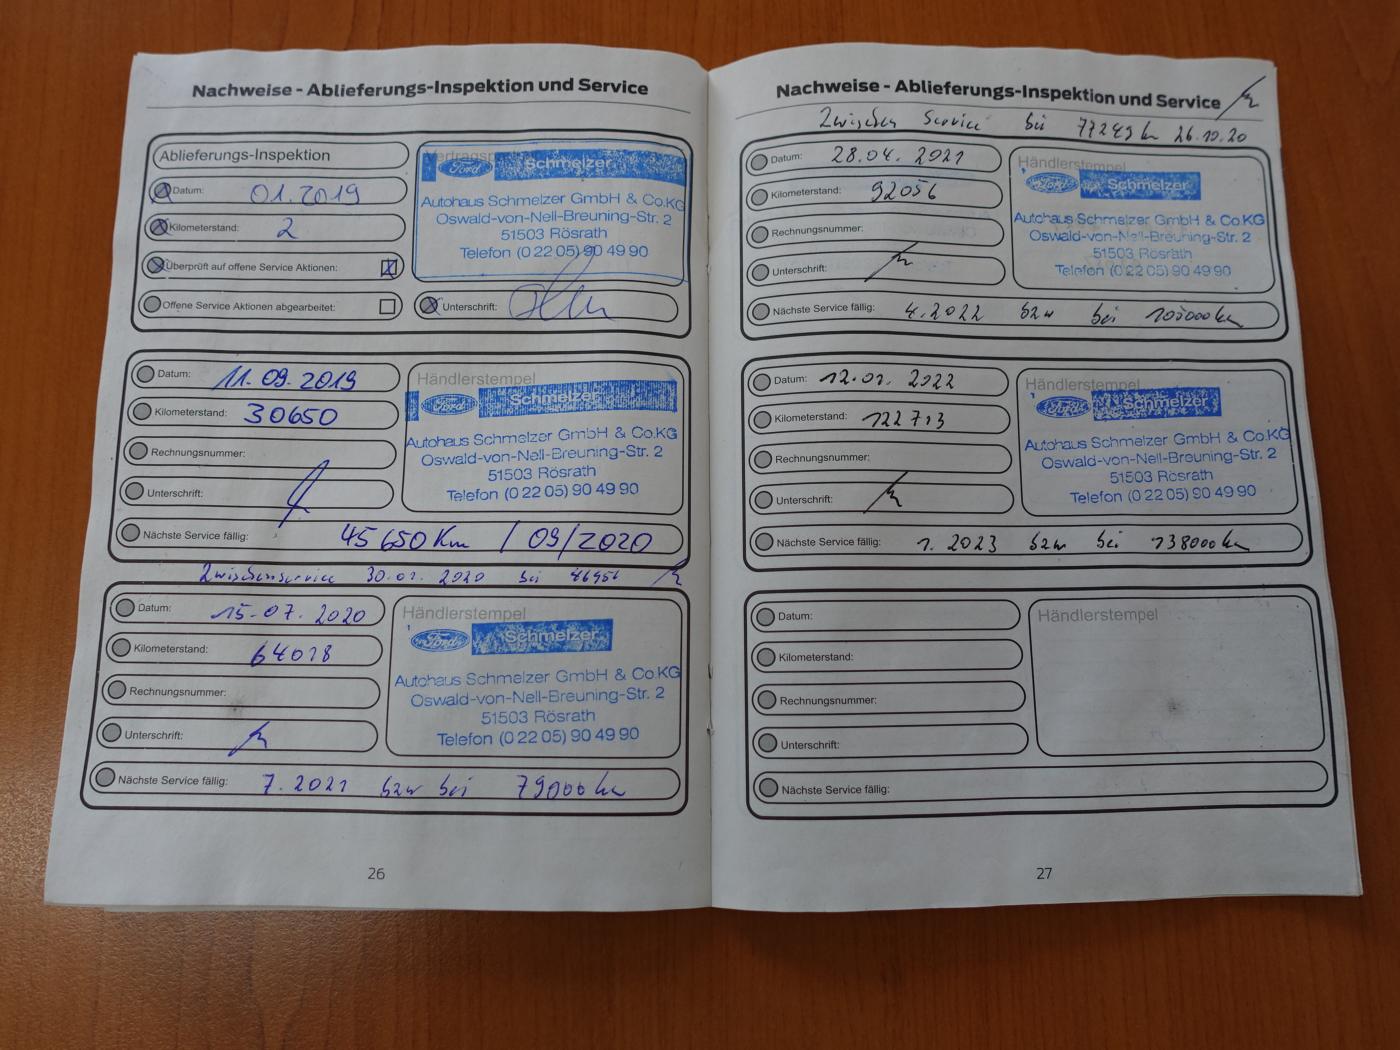 Nachweise - Ablieferungs-Inspektion und Service
Ablieferungs-Inspektion
Datum: 01.2019
Kilometerstand: 2
Überprüft auf offene Service Aktionen: X
Offene Service Aktionen abgearbeitet:
Ford Schmelzer
Autohaus Schmelzer GmbH & Co.KG
Oswald-von-Nell-Breuning-Str. 2
51503 Rösrath
Telefon (0 22 05) 90 49 90
Unterschrift:
Datum: 11.09.2019
Kilometerstand: 30650
Rechnungsnummer:
Unterschrift:
Händlerstempel
Ford Schmelzer
Autohaus Schmelzer GmbH & Co.KG
Oswald-von-Nell-Breuning-Str. 2
51503 Rösrath
Telefon (0 22 05) 90 49 90
Nächste Service fällig: 45650 Km / 09/2020
Zwischenservice 30.01.2020 bei
Datum: 15.07.2020
Kilometerstand: 64018
Rechnungsnummer:
Unterschrift:
Händlerstempel
Ford Schmelzer
Autohaus Schmelzer GmbH & Co.KG
Oswald-von-Nell-Breuning-Str. 2
51503 Rösrath
Telefon (0 22 05) 90 49 90
Nächste Service fällig: 7.2021 bzw bei 79000 km
26
Nachweise - Ablieferungs-Inspektion und Service
Zwischen Service bei 77249 km 26.10.20
Datum: 28.04.2021
Kilometerstand: 92056
Rechnungsnummer:
Unterschrift:
Händlerstempel
Ford Schmelzer
Autohaus Schmelzer GmbH & Co.KG
Oswald-von-Nell-Breuning-Str. 2
51503 Rösrath
Telefon (0 22 05) 90 49 90
Nächste Service fällig: 4.2022 bzw bei km
Datum: 12.01.2022
Kilometerstand: 122713
Rechnungsnummer:
Unterschrift:
Händlerstempel
Ford Schmelzer
Autohaus Schmelzer GmbH & Co.KG
Oswald-von-Nell-Breuning-Str. 2
51503 Rösrath
Telefon (0 22 05) 90 49 90
Nächste Service fällig: 1.2023 bzw bei 138000 km
Datum:
Kilometerstand:
Rechnungsnummer:
Unterschrift:
Händlerstempel
Nächste Service fällig:
27